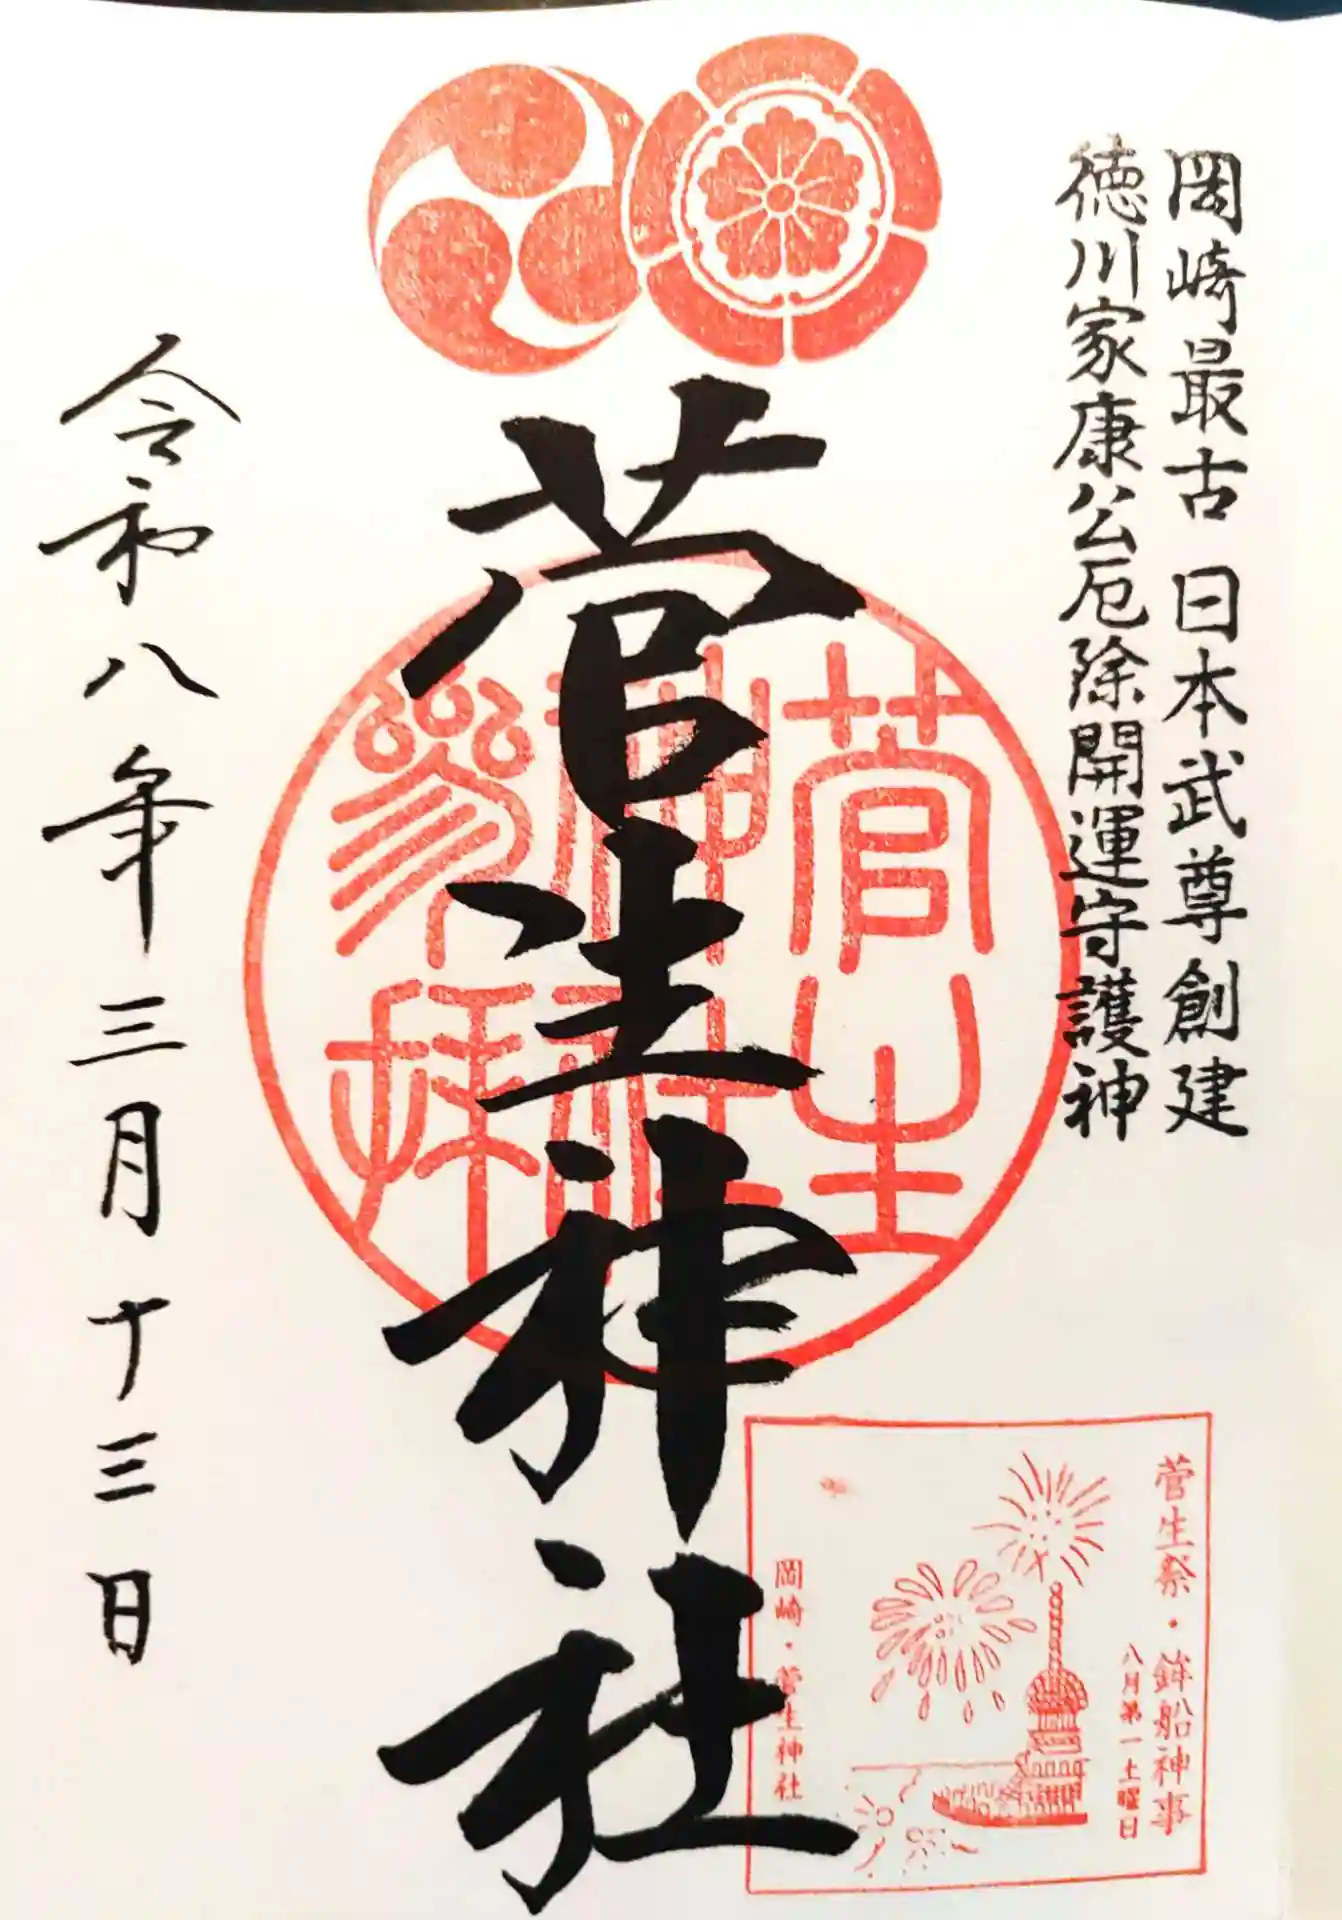 岡崎最古 日本武尊創建
徳川家康公厄除開運守護神
菅生神社
菅生
神社
參拝
令和八年三月十三日
菅生祭・鉾船神事
八月第一土曜日
岡崎・菅生神社